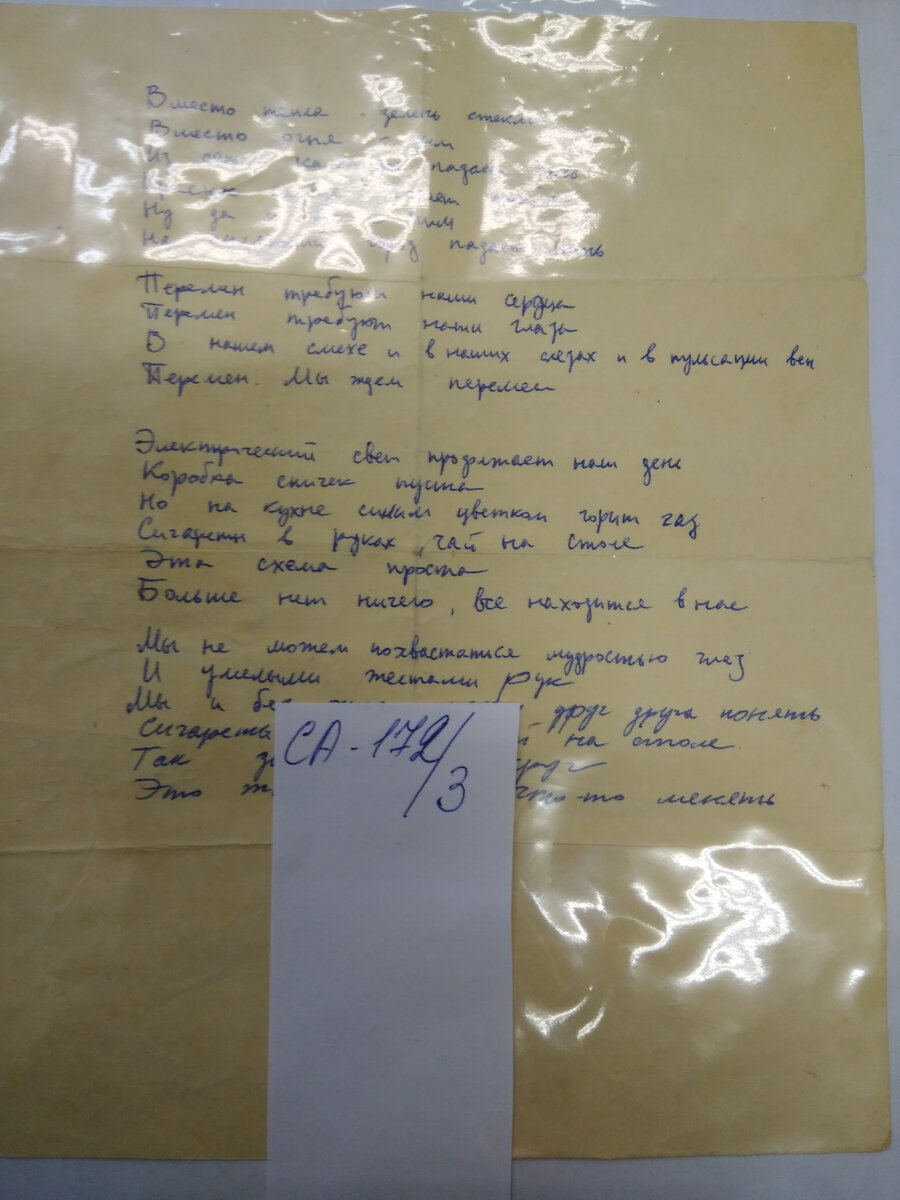 Вместо тепла - зелень стекла
Вместо огня - дым
Из падает
Ну да и
На город падает
Перемен требуют наши сердца
Перемен требуют наши глаза
В нашем смехе и в наших слезах и в пульсации вен
Перемен. Мы ждем перемен
Электрический свет продолжает наш день
Коробка спичек пуста
Но на кухне синим цветком горит газ
Сигареты в руках, чай на столе
Эта схема проста
Больше нет ничего, все находится в нас
Мы не можем похвастаться мудростью глаз
И умелыми жестами рук
Мы и друг друга понять
Сигареты на столе.
Так
Это что-то менять
СА-172/3